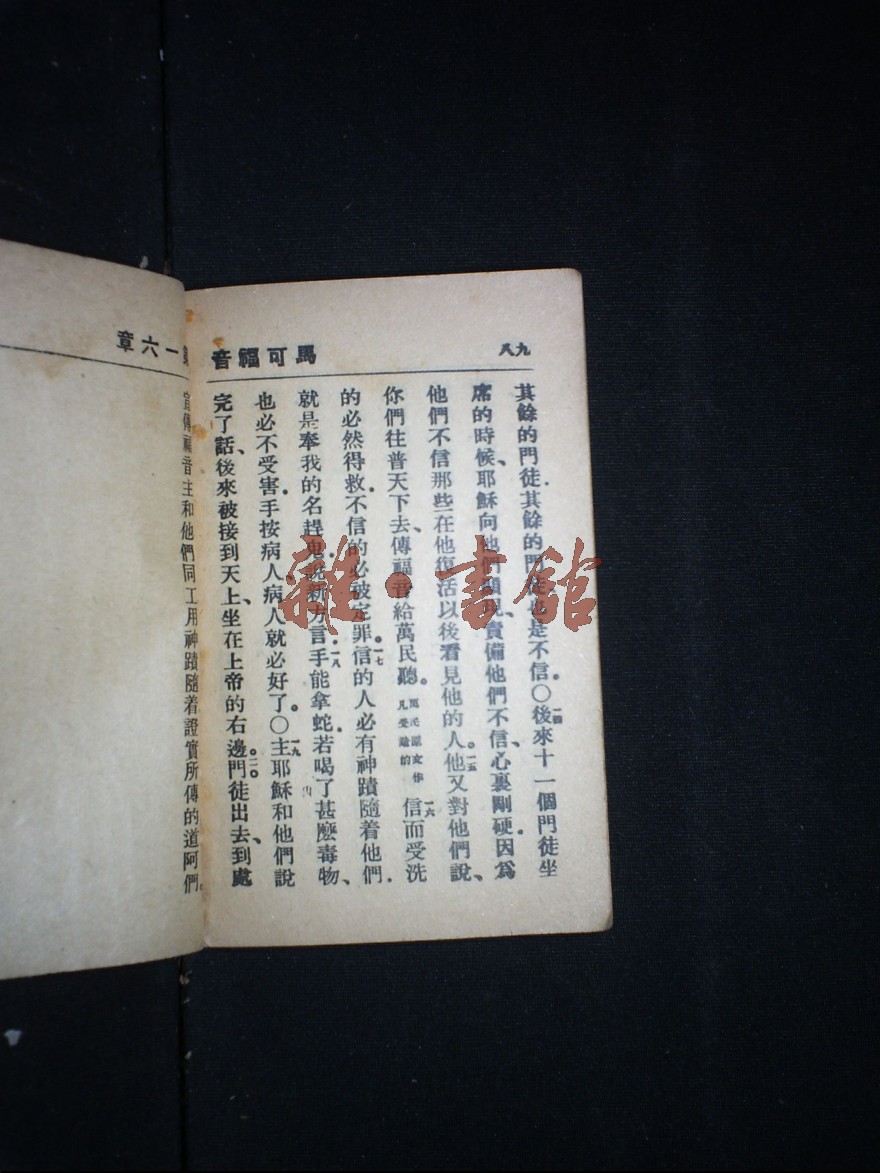 九八
馬可福音
其餘的門徒.其餘的門徒也是不信。〇一四後來十一個門徒坐
席的時候、耶穌向他們顯現、責備他們不信、心裏剛硬.因爲
他們不信那些在他復活以後看見他的人。一五他又對他們說、
你們往普天下去、傳福音給萬民聽。萬民原文作凡受造的一六信而受洗
的必然得救.不信的必被定罪。一七信的人必有神蹟隨着他們.
就是奉我的名趕鬼.說新方言.一八手能拿蛇.若喝了甚麼毒物、
也必不受害.手按病人、病人就必好了。〇一九主耶穌和他們說
完了話、後來被接到天上、坐在上帝的右邊。二〇門徒出去、到處
第一六章
宣傳福音主和他們同工用神蹟隨着證實所傳的道阿們。
雜·書館